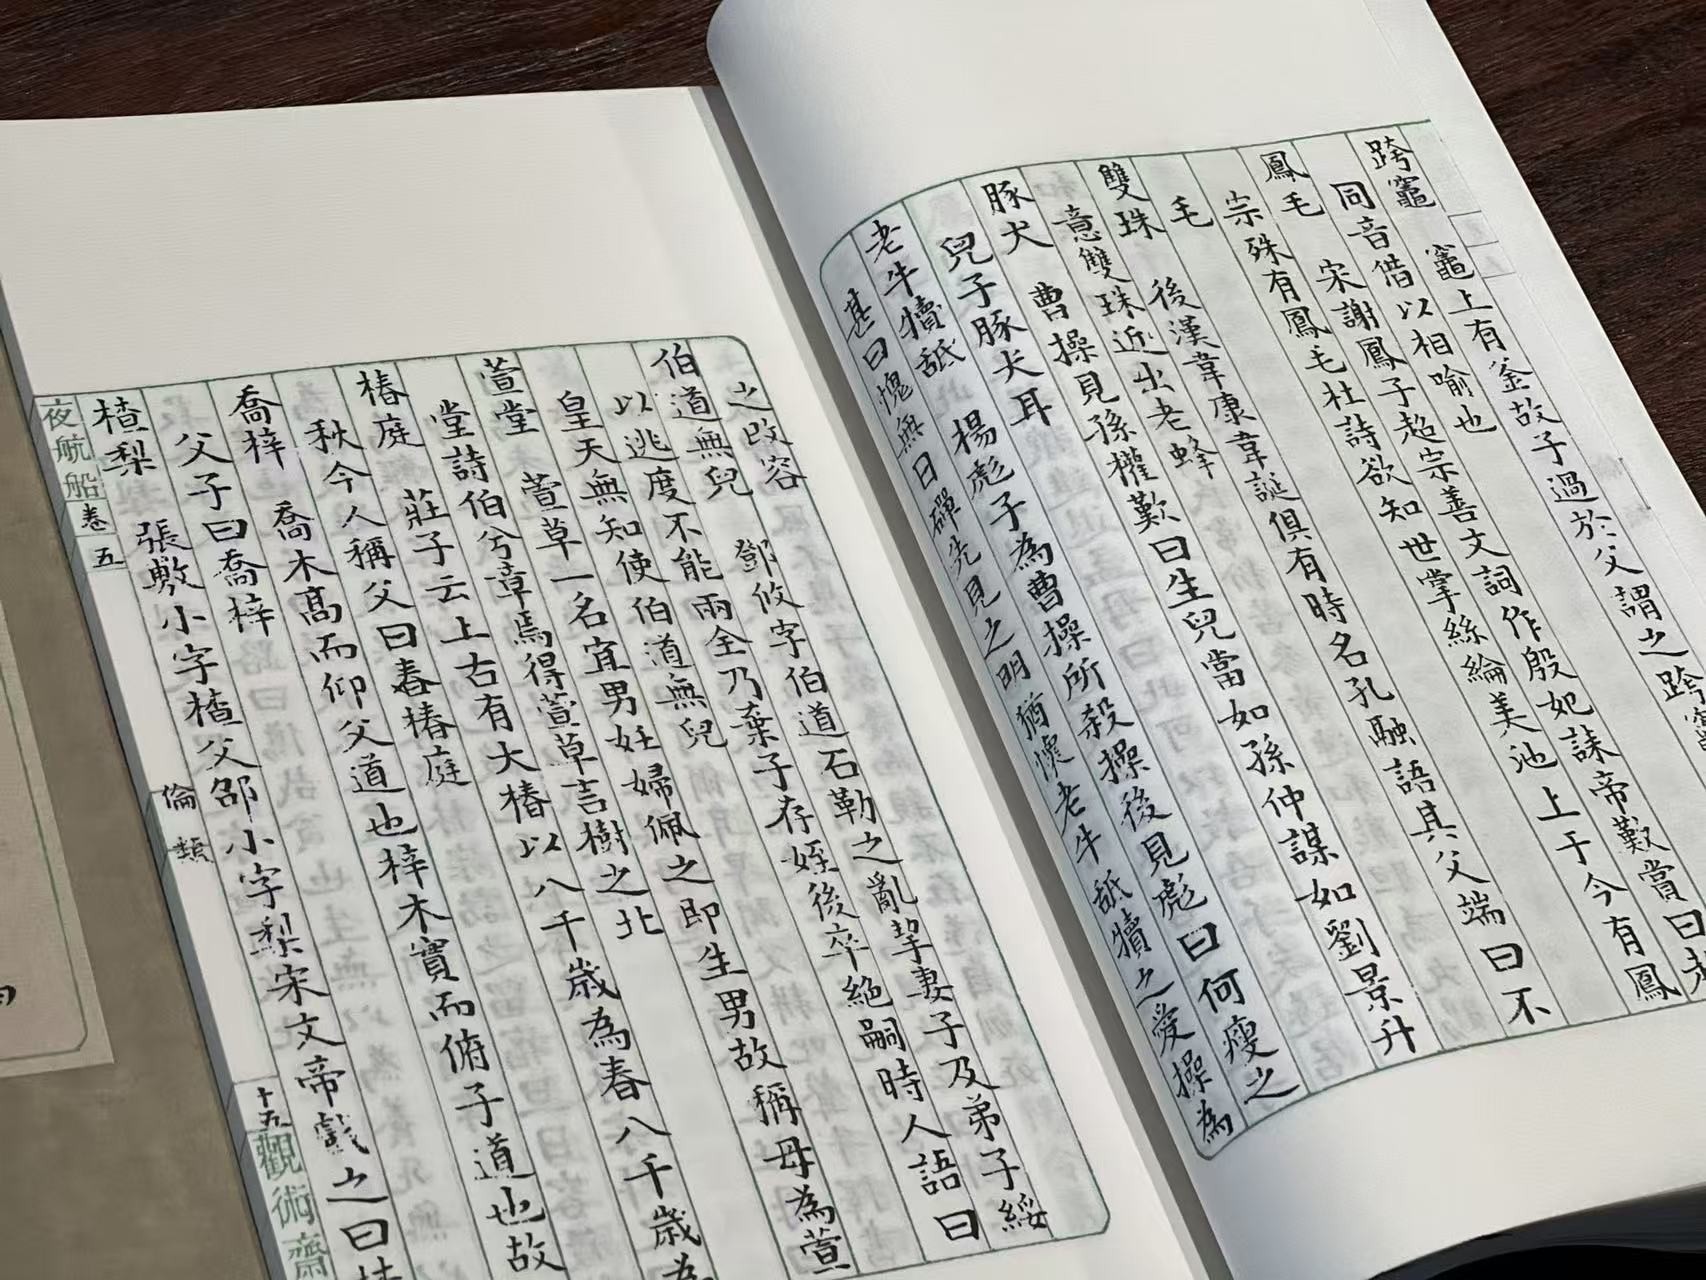 跨竈 竈上有釜故子過於父謂之跨竈
同音借以相喻也
鳳毛 宋謝鳳子超宗善文詞作殷妃誄帝歎賞曰超
宗殊有鳳毛杜詩欲知世掌絲綸美池上于今有鳳
毛
雙珠 後漢韋康韋誕俱有時名孔融語其父端曰不
意雙珠近出老蜂
豚犬 曹操見孫權歎曰生兒當如孫仲謀如劉景升
兒子豚犬耳
老牛犢舐 楊彪子為曹操所殺操後見彪曰何瘦之
甚曰愧無日磾先見之明猶懷老牛舐犢之愛操為
之改容
伯道無兒 鄧攸字伯道石勒之亂挈妻子及弟子綏
以逃度不能兩全乃棄子存姪後卒絕嗣時人語曰
皇天無知使伯道無兒
萱堂 萱草一名宜男妊婦佩之即生男故稱母為萱
堂詩伯兮章焉得萱草言樹之北
椿庭 莊子云上古有大椿以八千歲為春八千歲為
秋今人稱父曰春椿庭
喬梓 喬木高而仰父道也梓木實而俯子道也故
父子曰喬梓
樝梨 張敷小字樝父邵小字梨宋文帝戲之曰樝
夜航船 卷五 倫類 十五 觀術齋